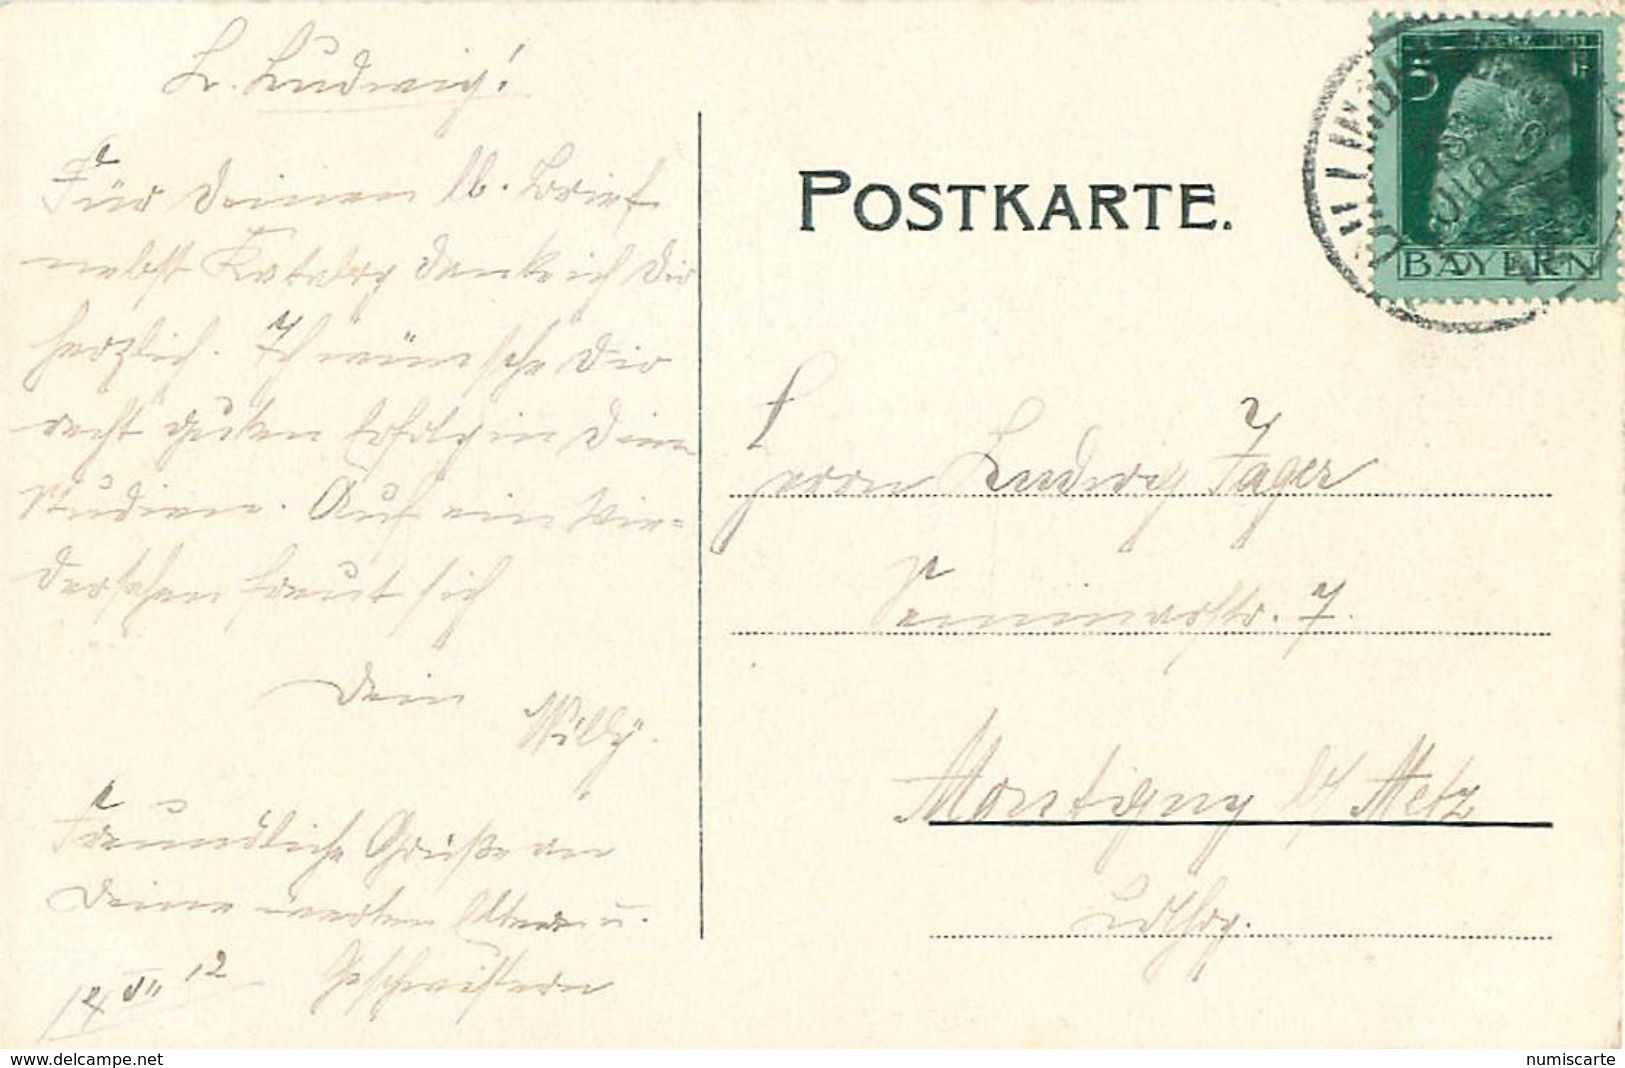 L. Ludwig!
Für Deinen lb. Brief
nebst Katalog danke ich Dir
herzlich. Ich wünsche Dir
recht guten Erfolg in Dein
Studien. Auf ein Wie=
dersehen freut sich
Dein
Willy.
Freundliche Grüße an
Deine werten Eltern u.
Geschwistern
14 VII 12
POSTKARTE.
5
BAYERN
Herrn Ludwig Jager
Seminarstr. 7.
Montigny b/ Metz
Lothrg.
delcampe.net
numiscarte